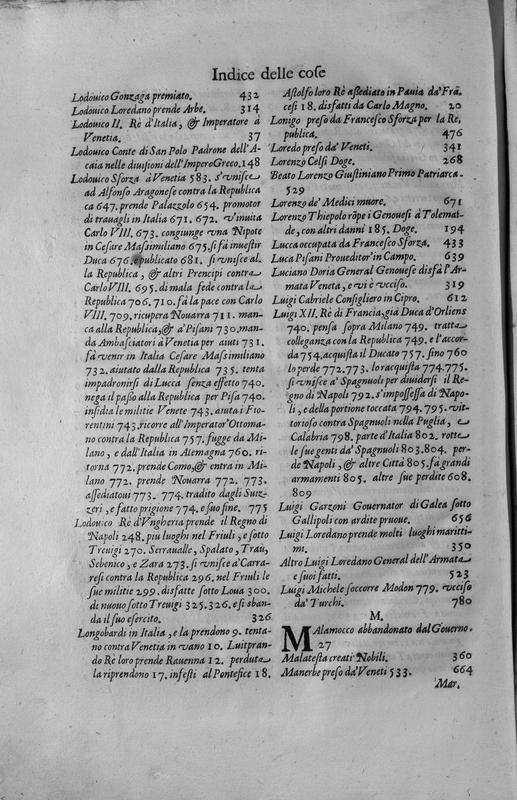 Indice delle cose
Lodouico Gonzaga premiato. 432
Lodouico Loredano prende Arbe. 314
Lodouico II. Rè d'Italia, & Imperatore à
Venetia. 37
Lodouico Conte di San Polo Padrone dell'A-
caia nelle diuisioni dell'Impero Greco. 148
Lodouico Sforza à Venetia 583. s'vnisce
ad Alfonso Aragonese contra la Republica
ca 647. prende Palazzolo 654. promotor
di trauagli in Italia 671. 672. v'inuita
Carlo VIII. 673. congiunge vna Nipote
in Cesare Massimiliano 675. si fà inuestir
Duca 676. è publicato 681. si vnisce al
la Republica, & altri Prencipi contra
Carlo VIII. 695. di mala fede contra la
Republica 706. 710. fà la pace con Carlo
VIII. 709. ricupera Nouarra 711. man-
ca alla Republica, & a' Pisani 730. man-
da Ambasciatori à Venetia per aiuti 731.
fà venir in Italia Cesare Massimiliano
732. aiutato dalla Republica 735. tenta
impadronirsi di Lucca senza effetto 740.
nega il passo alla Republica per Pisa 740.
insidia le militie Venete 743. aiuta i Fio-
rentini 743. ricorre all'Imperator Ottoma-
no contra la Republica 757. fugge da Mi-
lano, e dall'Italia in Alemagna 760. ri-
torna 772. prende Como, & entra in Mi-
lano 772. prende Nouarra 772. 773.
assediatoui 773. 774. tradito dagli Suiz-
zeri, e fatto prigione 774. e suo fine. 775
Lodouico Rè d'Vngheria prende il Regno di
Napoli 248. più luoghi nel Friuli, e sotto
Treuigi 270. Serraualle, Spalato, Traù,
Sebenico, e Zara 273. si vnisce a' Carra-
resi contra la Republica 296. nel Friuli le
sue militie 299. disfatte sotto Loua 300.
di nuouo sotto Treuigi 325. 326. e si sban-
da il suo esercito. 326
Longobardi in Italia, e la prendono 9. tenta-
no contra Venetia in vano 10. Luitpran-
do Rè loro prende Rauenna 12. perduta
la riprendono 17. infesti al Pontefice 18.
Astolfo loro Rè assediato in Pauia da' Frã
cesi 18. disfatti da Carlo Magno. 20
Lonigo preso da Francesco Sforza per la Re
publica. 476
Loredo preso da' Veneti. 341
Lorenzo Celsi Doge. 268
Beato Lorenzo Giustiniano Primo Patriarca.
529
Lorenzo de' Medici muore. 671
Lorenzo Thiepolo rõpe i Genouesi à Tolemai-
de, con altri danni 185. Doge. 194
Lucca occupata da Francesco Sforza. 433
Luca Pisani Proueditor in Campo. 639
Luciano Doria General Genouese disfà l'Ar-
mata Veneta, e vi è vcciso. 319
Luigi Cabriele Consigliero in Cipro. 612
Luigi XII. Rè di Francia, già Duca d'Orliens
740. pensa sopra Milano 749. tratta
colleganza con la Republica 749. e l'accor-
da 754. acquista il Ducato 757. sino 760
lo perde 772. 773. lo racquista 774. 775.
si vnisce a' Spagnuoli per diuidersi il Re-
gno di Napoli 792. s'impossessa di Napo-
li, e della portione toccata 794. 795. vit-
torioso contra Spagnuoli nella Puglia, e
Calabria 798. parte d'Italia 802. rotte
le sue genti da' Spagnuoli 803. 804. per-
de Napoli, & altre Città 805. fà grandi
armamenti 805. altre sue perdite 608.
809
Luigi Garzoni Gouernator di Galea sotto
Gallipoli con ardite pruoue. 656
Luigi Loredano prende molti luoghi maritti-
mi. 350
Altro Luigi Loredano General dell'Armata
e suoi fatti. 523
Luigi Michele soccorre Modon 779. vcciso
da' Turchi. 780
M.
MAlamocco abbandonato dal Gouerno.
27
Malatesta creati Nobili. 360
Manerbe preso da' Veneti 533. 664
Mar.